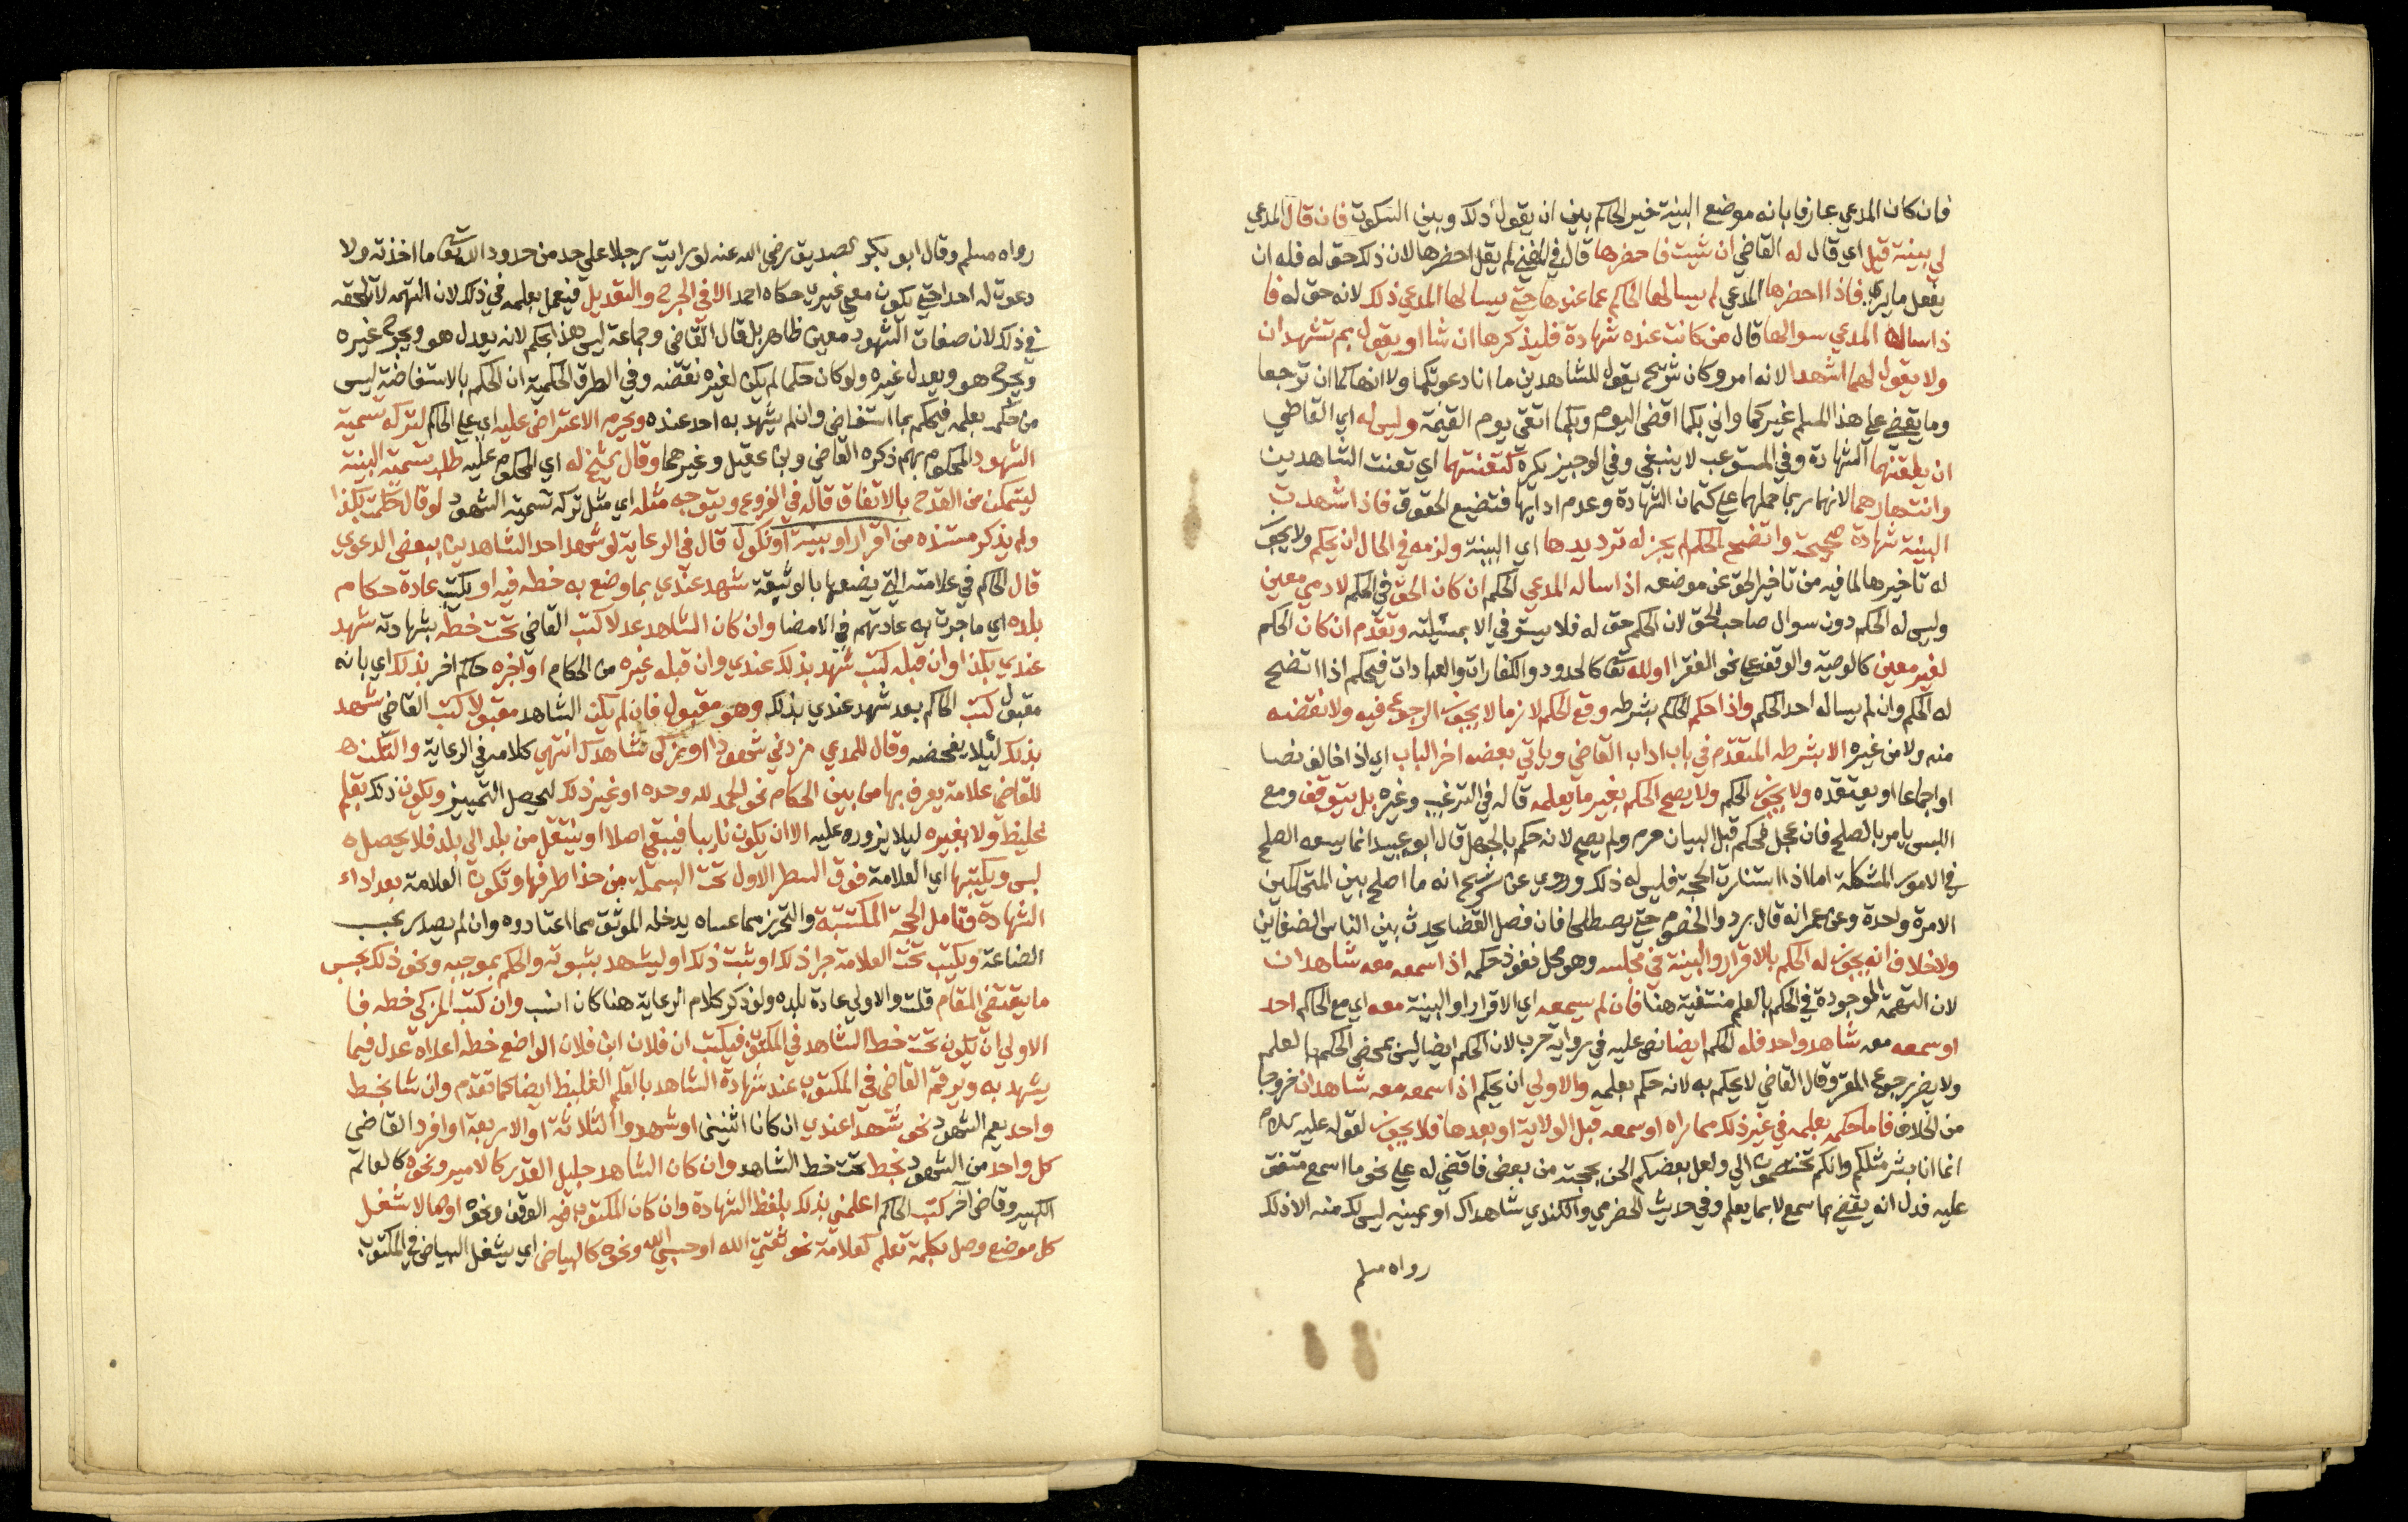 فان كان المدعي عارفا بانه موضع البينة خير الحاكم بين ان يقول ذلك وبين السكوت فان قال المدعي
لي بينة قيل اي قال له القاضي ان شيت فاحضرها قال في المغني لم يقل احضرها لان ذلك حق له فله ان
يفعل ما يرى فاذا احضرها المدعي لم يسالها الحاكم عما عندها حتى يسالها المدعي ذلك لانه حق له فا
ذا ساله المدعي سوالها قال من كانت عنده شهادة فليذكرها ان شا او يقول بم تشهدان
ولا يقول لهما اشهدا لانه امر وكان شريح يقول للشاهدين ما انا دعوتكما ولا انهاكما ان ترجعا
وما يقضي على هذا المسلم غيركما واني بكما اقضي اليوم وبكما اتقي يوم القيمة وليس له اي القاضي
ان يلقنهما الشهادة وفي المستوعب لا ينبغي وفي الوجيز يكره كتعنتهما اي تعنت الشاهدين
وانتهارهما لانه ربما حملهما على كتمان الشهادة وعدم ادايها فتضيع الحقوق فاذا شهدت
البينة شهادة صحيحة واتضح الحكم لم يجز له ترديدها اي البينة ولزمه في الحال ان يحكم ولا يجوز
له تاخيرها لما فيه من تاخير الحق عن موضعه اذا ساله المدعي الحكم ان كان الحق في الحكم لادمي معين
وليس له الحكم دون سوال صاحب الحق لان الحكم حق له فلا يستوفي الا بمسيلته وتقدم ان كان الحكم
لغير معين كالوصية والوقف على نحو الفقرا او لله تعالى كالحدود والكفارات والعبادات فيحكم اذا اتضح
له الحكم وان لم يساله احد الحكم واذا حكم الحاكم بشرطه وقع الحكم لازما لا يجوز الرجوع فيه ولا نقضه
منه ولا من غيره الا بشرطه المتقدم في باب اداب القاضي وياتي بعضه اخر الباب اي اذا خالف نصا
او اجماعا او يعتقده ولا يجوز الحكم ولا يصح الحكم بغير ما يعلمه قاله في الترغيب وغيره بل يتوقف ومع
اللبس يامر بالصلح فان عجل فحكم قبل البيان حرم ولم يصح لانه حكم بالجهل قال ابو عبيد انما يسعه الصلح
في الامور المشكلة اما اذا استنارت الحجة فليس له ذلك وروي عن شريح انه ما اصلح بين المتحاكمين
الا مرة واحدة وعن عمر انه قال ردوا الخصوم حتى يصطلحوا فان فصل القضا يحدث بين الناس الضغاين
ولا خلاف انه يجوز له الحكم بالاقرار والبينة في مجلسه وهو محل نفوذ حكمه اذا سمعه معه شاهدان
لان التهمة الموجودة في الحكم بالعلم منتفية هنا فان لم يسمعه اي الاقرار او البينة معه اي مع الحاكم احد
او سمعه معه شاهد واحد فله الحكم ايضا نص عليه في رواية حرب لان الحكم ايضا ليس بمحض الحكم بالعلم
ولا يضر رجوع المقر وقال القاضي لا يحكم به لانه حكم بعلمه والاولى ان يحكم اذا سمعه معه شاهدان خروجا
من الخلاف فاما حكمه بعلمه في غير ذلك مما راه او سمعه قبل الولاية او بعدها فلا يجوز لقوله عليه السلام
انما انا بشر مثلكم وانكم تختصمون الي ولعل بعضكم الحن بحجته من بعض فاقضي له على نحو ما اسمع متفق
عليه فدل انه يقضي بما سمع لا بما يعلم وفي حديث الحضرمي والكندي شاهداك او يمينه ليس لك منه الا ذلك
رواه مسلم
رواه مسلم وقال ابو بكر الصديق رضي الله عنه لو رايت رجلا على حد من حدود الله تعالى ما اخذته ولا
دعوت له احدا حتى يكون معي غيري حكاه احمد الا في الجرح والتعديل فيعمل بعلمه في ذلك لان التهمة لا تلحقه
في ذلك لان صفات الشهود معنى ظاهر بل قال القاضي وجماعة ليس هذا بحكم لانه يعدل هو ويجرح غيره
ويجرح هو ويعدل غيره ولو كان حكما لم يكن لغيره نقضه وفي الطرق الحكمية ان الحكم بالاستفاضة ليس
من حكمه بعلمه فيحكم بما استفاض وان لم يشهد به احد عنده ويحرم الاعتراض عليه اي على الحاكم لتركه تسمية
الشهود المحكوم بهم ذكره القاضي وبن عقيل وغيرهما وقال شيخ له اي المحكوم عليه طلب تسمية البينة
ليتمكن من القدح بالاتفاق قاله في الفروع ويتوجه مثله اي مثل تركه تسمية الشهود لو قال حكمت بكذا
ولم يذكر مستنده من اقرار او بينة او نكول قال في الرعاية لو شهد احد الشاهدين ببعض الدعوى
قال الحاكم في علامته التي يضعها بالوثيقة شهد عندي بما وضع به خطه فيه او يكتب عادة حكام
بلده اي ما جرت به عادتهم في الامضا وان كان الشاهد عدلا كتب القاضي تحت خطه بشهادته شهد
عندي بكذا وان قبله كتب شهد بذلك عندي وان قبله غيره من الحكام او اخبره حاكم اخر بذلك اي بانه
مقبول كتب الحاكم بعد شهد عندي بذلك وهو مقبول فان لم يكن الشاهد مقبولا كتب القاضي شهد
بذلك ليلا يغضه وقال للمدعي زدني شهودا او زكي شاهدك انتهى كلامه في الرعاية
للقاضي علامة يعرف بها من بين الحكام نحو الحمد لله وحده او غير ذلك ليحصل التمييز ويكون ذلك بقلم
غليظ ولا بغيره ليلا يزوره عليه الا ان يكون نايبا فيبقى اصلا او ينتقل من بلد الى بلد فلا يحصل
لبس ويكتبها اي العلامة فوق السطر الاول تحت البسملة من حذا طرفها وتكون العلامة بعد اداء
الشهادة وتامل الحجة المكتتبة والتحرز مما عساه يدخله الموثق مما اعتادوه وان لم يصدر بحسب
الصناعة ويكتب تحت العلامة جرا ذلك او ثبت ذلك او ليشهد بثبوته والحكم بموجبه ونحو ذلك بحسب
ما يقتضي المقام قلت والاولى عادة بلده ولو ذكر كلام الرعاية هنا كان انسب وان كتب المزكي خطه فا
الاولى ان يكون تحت خط الشاهد في المكتوب فيكتب ان فلان ابن فلان الواضع خطه اعلاه عدل فيما
يشهد به ويرقم القاضي في المكتوب عند شهادة الشاهد بالقلم الغليظ ايضا كما تقدم وان شا بخط
واحد يعم الشهود نحو شهدا عندي ان كانا اثنين او شهدوا الثلاثة او الاربعة او افرد القاضي
كل واحد من الشهود بخط تحت خط الشاهد وان كان الشاهد جليل القدر كالامير ونحوه كالعالم
الكبير وقاضي اخر كتب الحاكم اعلمني بذلك بلفظ الشهادة وان كان المكتوب فيه الوقف ونحوه اوصالا شغل
كل موضع وصل بكلمة تعلم كعلامة نحو ثقتي الله او حسبي الله ونحوه كالبياض اي يشغل البياض في المكتوب